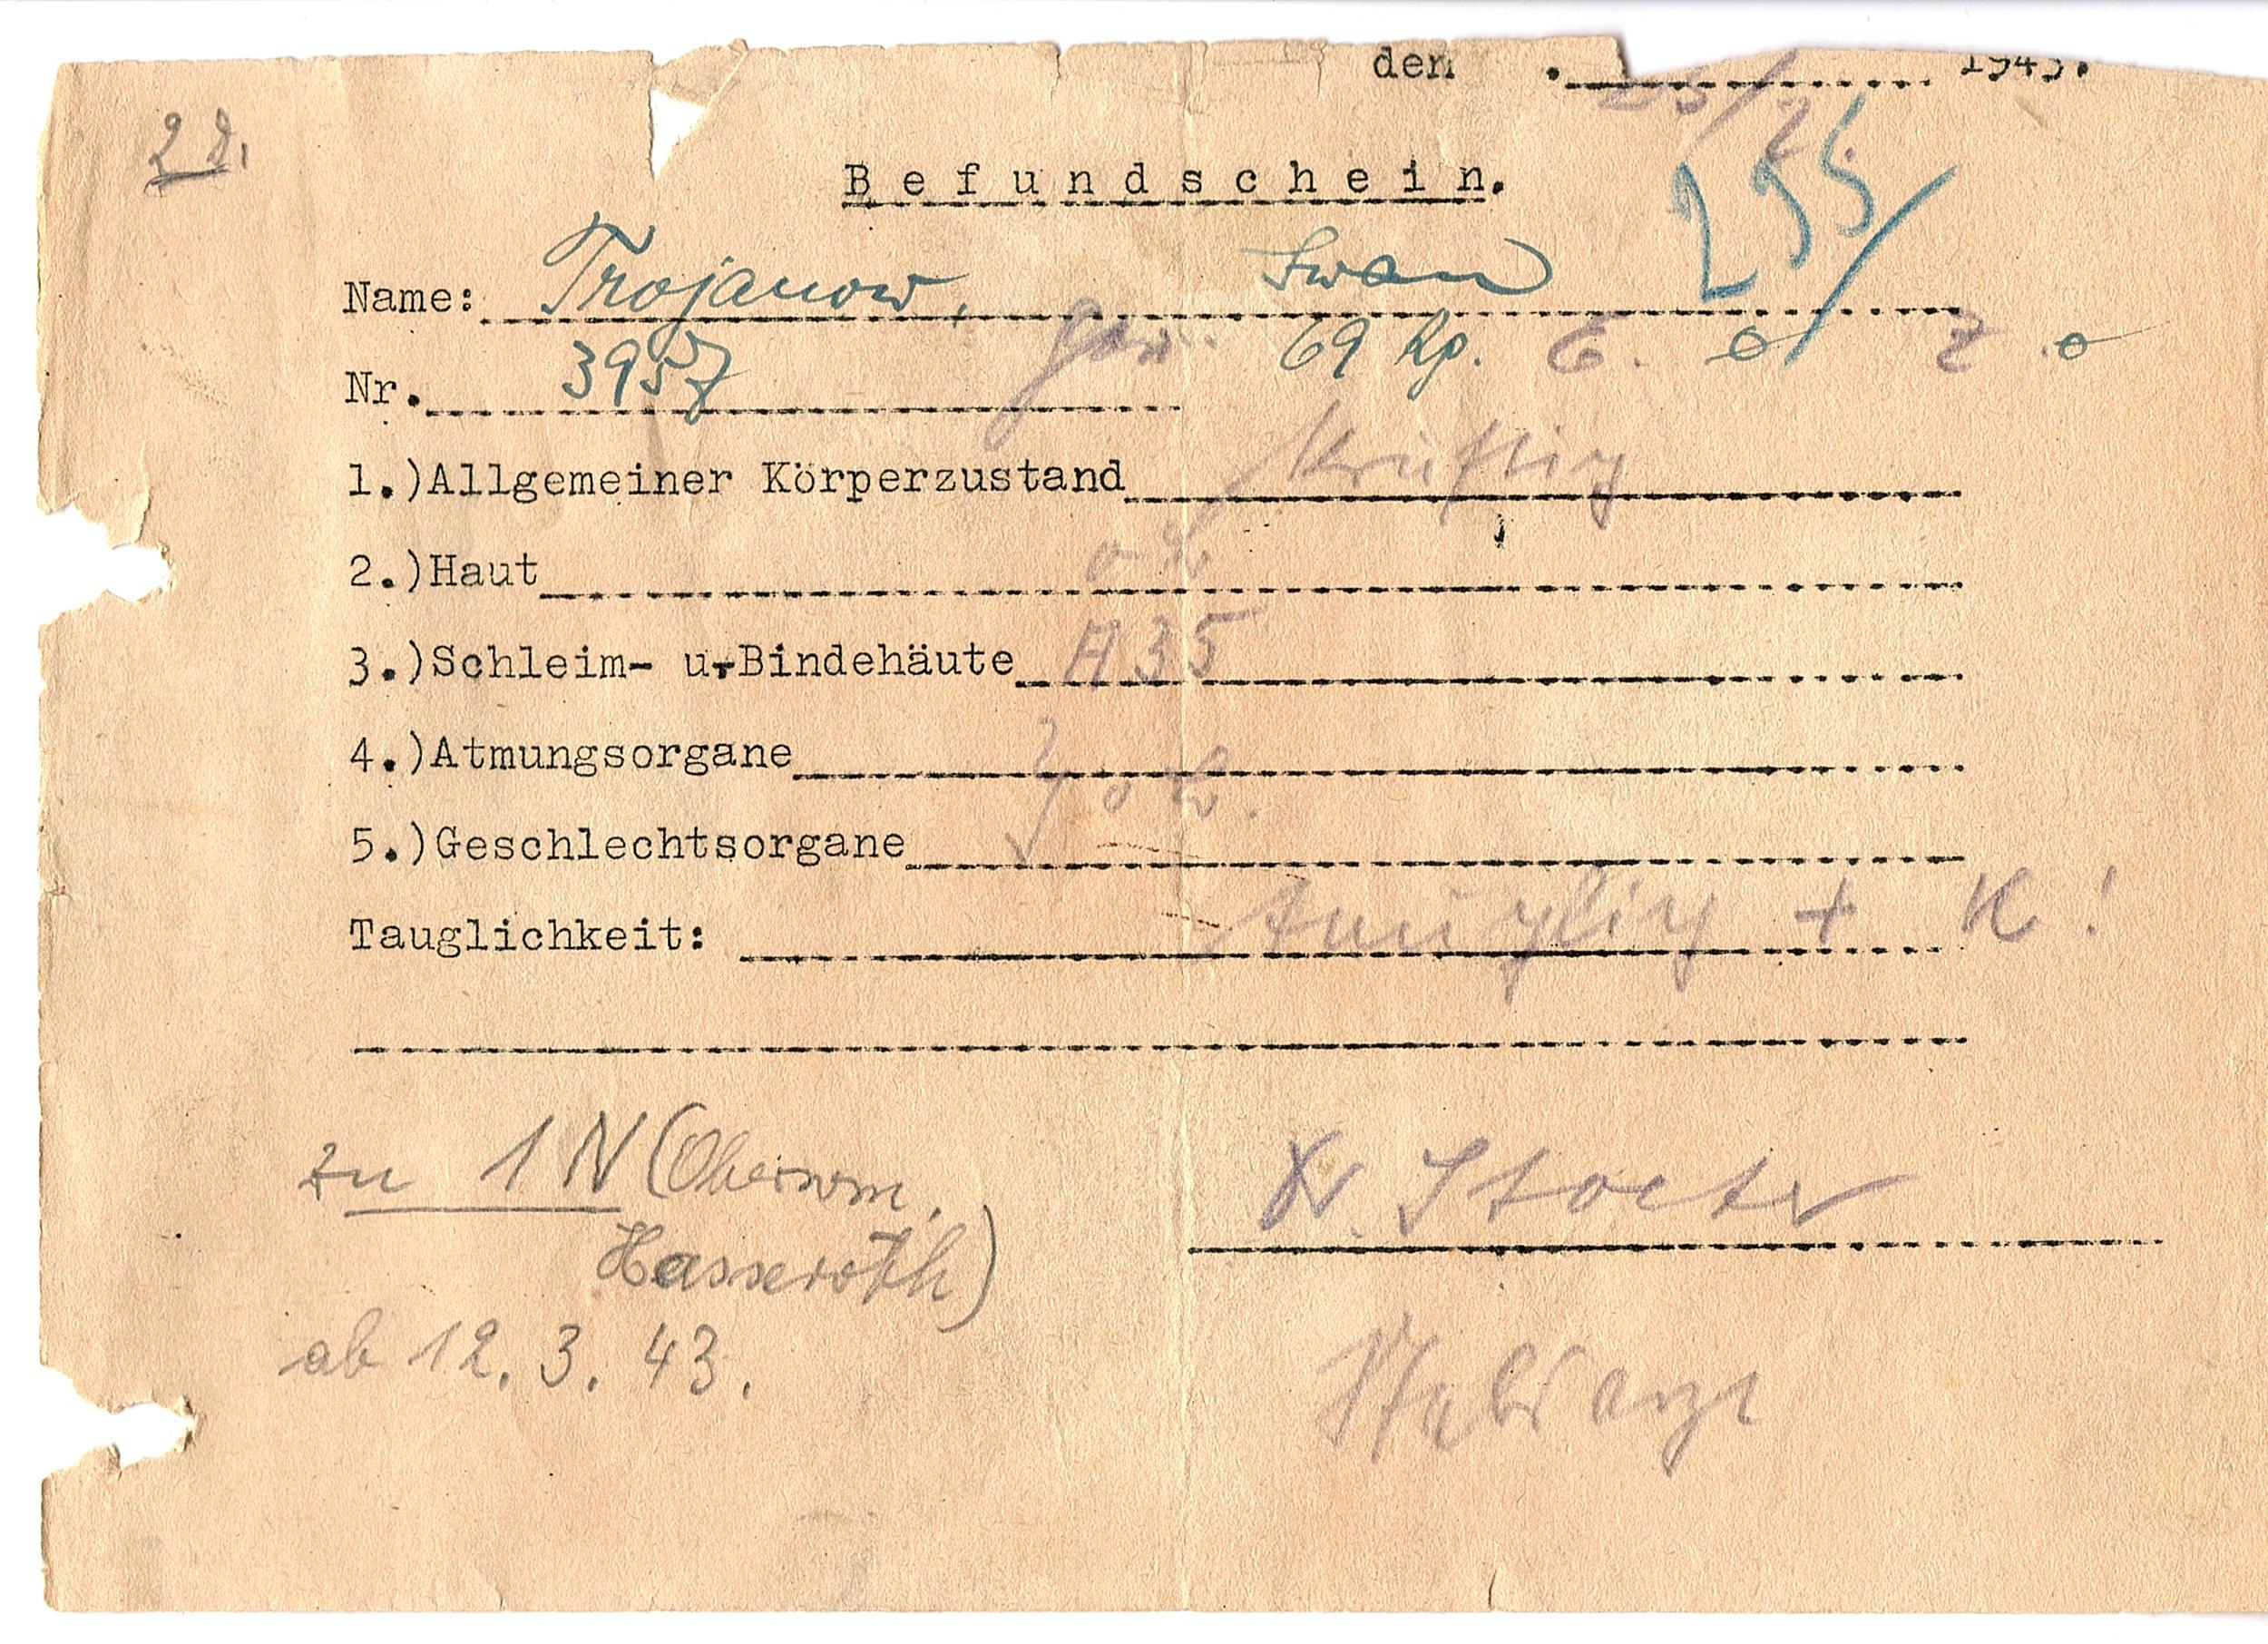 den . 25/2. 1943.
2 d.
Befundschein.
255/
Name: Trojanow, Iwan
Nr. 3957 69 Kp. E. o Z. o
1.)Allgemeiner Körperzustand kräftig
2.)Haut oB
3.)Schleim- u.Bindehäute A35
4.)Atmungsorgane } oB.
5.)Geschlechtsorgane
Tauglichkeit: tauglich + K!
zu 1 N (Oberwm.
Hasseroth)
ab 12. 3. 43.
Dr. Stoeter
Stabsarzt